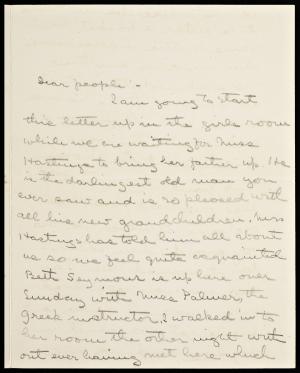 Dear people -
I am going to start
this letter up in the girls room
while we are waiting for Miss
Hastings to bring her father up. He
is the darlingest old man you
ever saw and is so pleased with
all his new grandchildren. Miss
Hastings has told him all about
us so we feel quite acquainted
Beth Seymour is up here over
Sunday with Miss Palmer, the
Greek instructor. I walked in to
her room the other night with
out ever having met here which